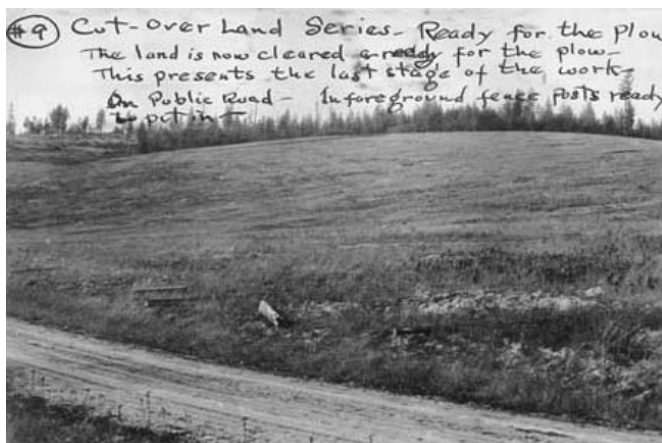 #9 Cut-Over Land Series - Ready for the Plow
The land is now cleared & ready for the plow -
This presents the last stage of the work -
On Public Road - In foreground fence posts ready
to put in -